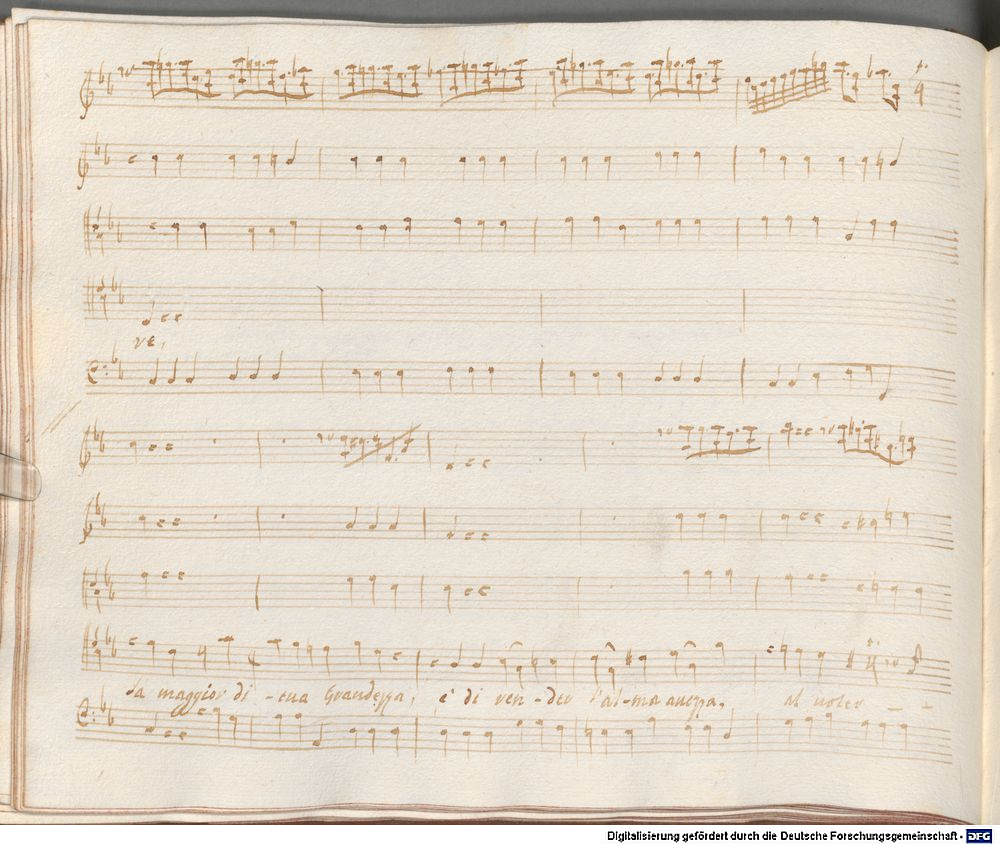 ve,
La maggior di - tua Grandezza, è di ren - der l'al - ma avezza. al voler - -
Digitalisierung gefördert durch die Deutsche Forschungsgemeinschaft - DFG